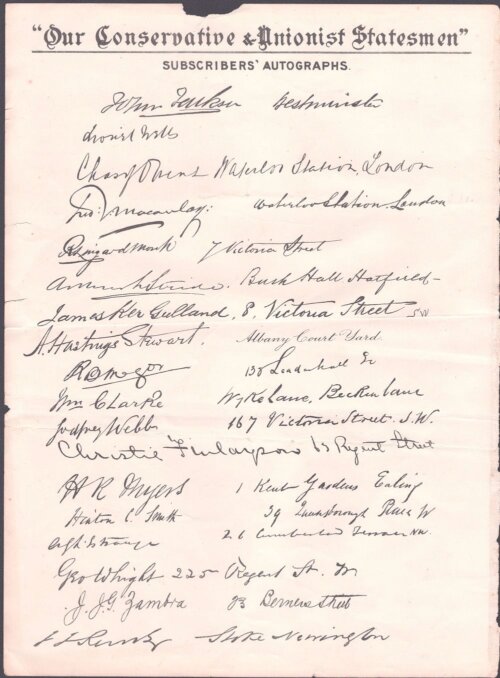 "Our Conservative & Unionist Statesmen"
SUBSCRIBERS' AUTOGRAPHS.
John Westminster
Lionel Wells
Waterloo Station, London
Macaulay. Waterloo Station London
Monk 7 Victoria Street
Bush Hall Hatfield
James Ker Gulland, 8, Victoria Street SW
A. Hastings Stewart. Albany Court Yard.
138 Leadenhall St
Wm Clarke Wyke Lane, Beckenham
Godfrey Webb 167 Victoria Street. S.W.
Christie Finlayson 63 Regent Street
H R Myers 1 Kent Gardens Ealing
Hinton C. Smith 39 Gainsborough W
26 Cumberland Terrace NW.
Geo Whight 225 Regent St. W
J. J. G. Zambra 23 Berners Street
Stoke Newington